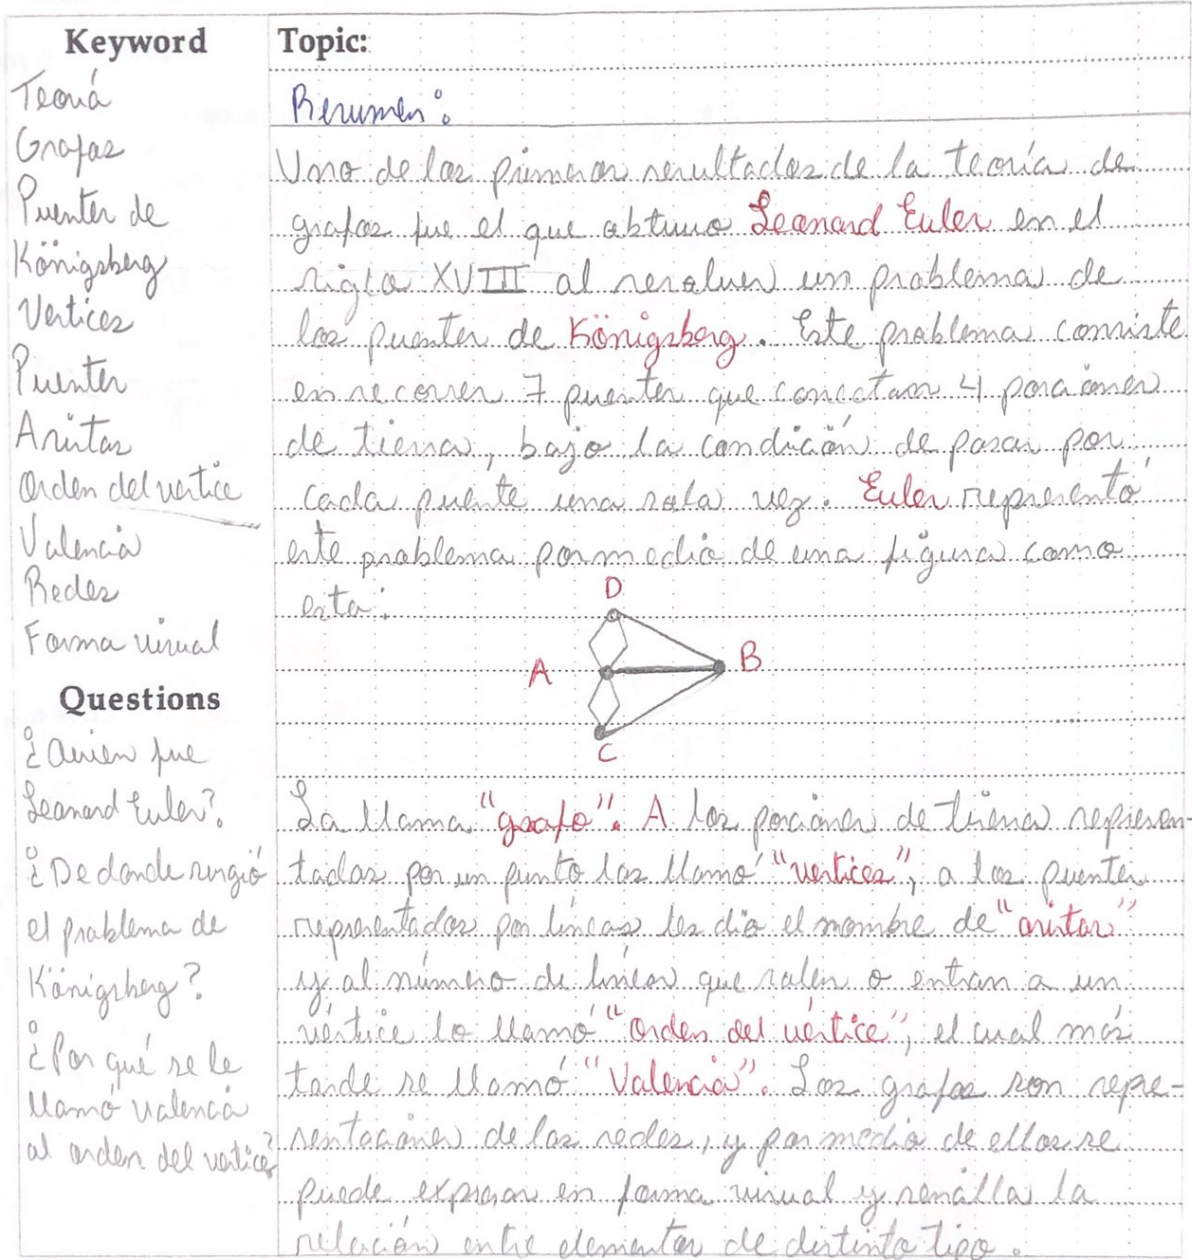 Keyword
Teoría
Grafos
Puentes de
Königsberg
Vertices
Puentes
Aristas
Orden del vertice
Valencia
Redes
Forma visual
Questions
¿Quien fue
Leonard Euler?
¿De donde surgió
el problema de
Königsberg?
¿Por qué se le
llamó valencia
al orden del vertice?
Topic:
Resumen:
Uno de los primeros resultados de la teoría de
grafos fue el que obtuvo Leonard Euler en el
siglo XVIII al resolver un problema de
los puentes de Königsberg. Este problema consiste
en recorrer 7 puentes que conectan 4 porciones
de tierra, bajo la condición de pasar por
cada puente una sola vez. Euler representó
este problema por medio de una figura como
esta:
D
A
B
C
La llama "grafo". A las porciones de tierra represen-
tadas por un punto las llamó "vertices", a los puentes
representados por líneas les dio el nombre de "aristas"
y al número de líneas que salen o entran a un
vértice lo llamó "orden del vértice", el cual más
tarde se llamó "Valencia". Los grafos son repre-
sentaciones de las redes, y por medio de ellos se
puede expresar en forma visual y sencilla la
relación entre elementos de distinto tipo.